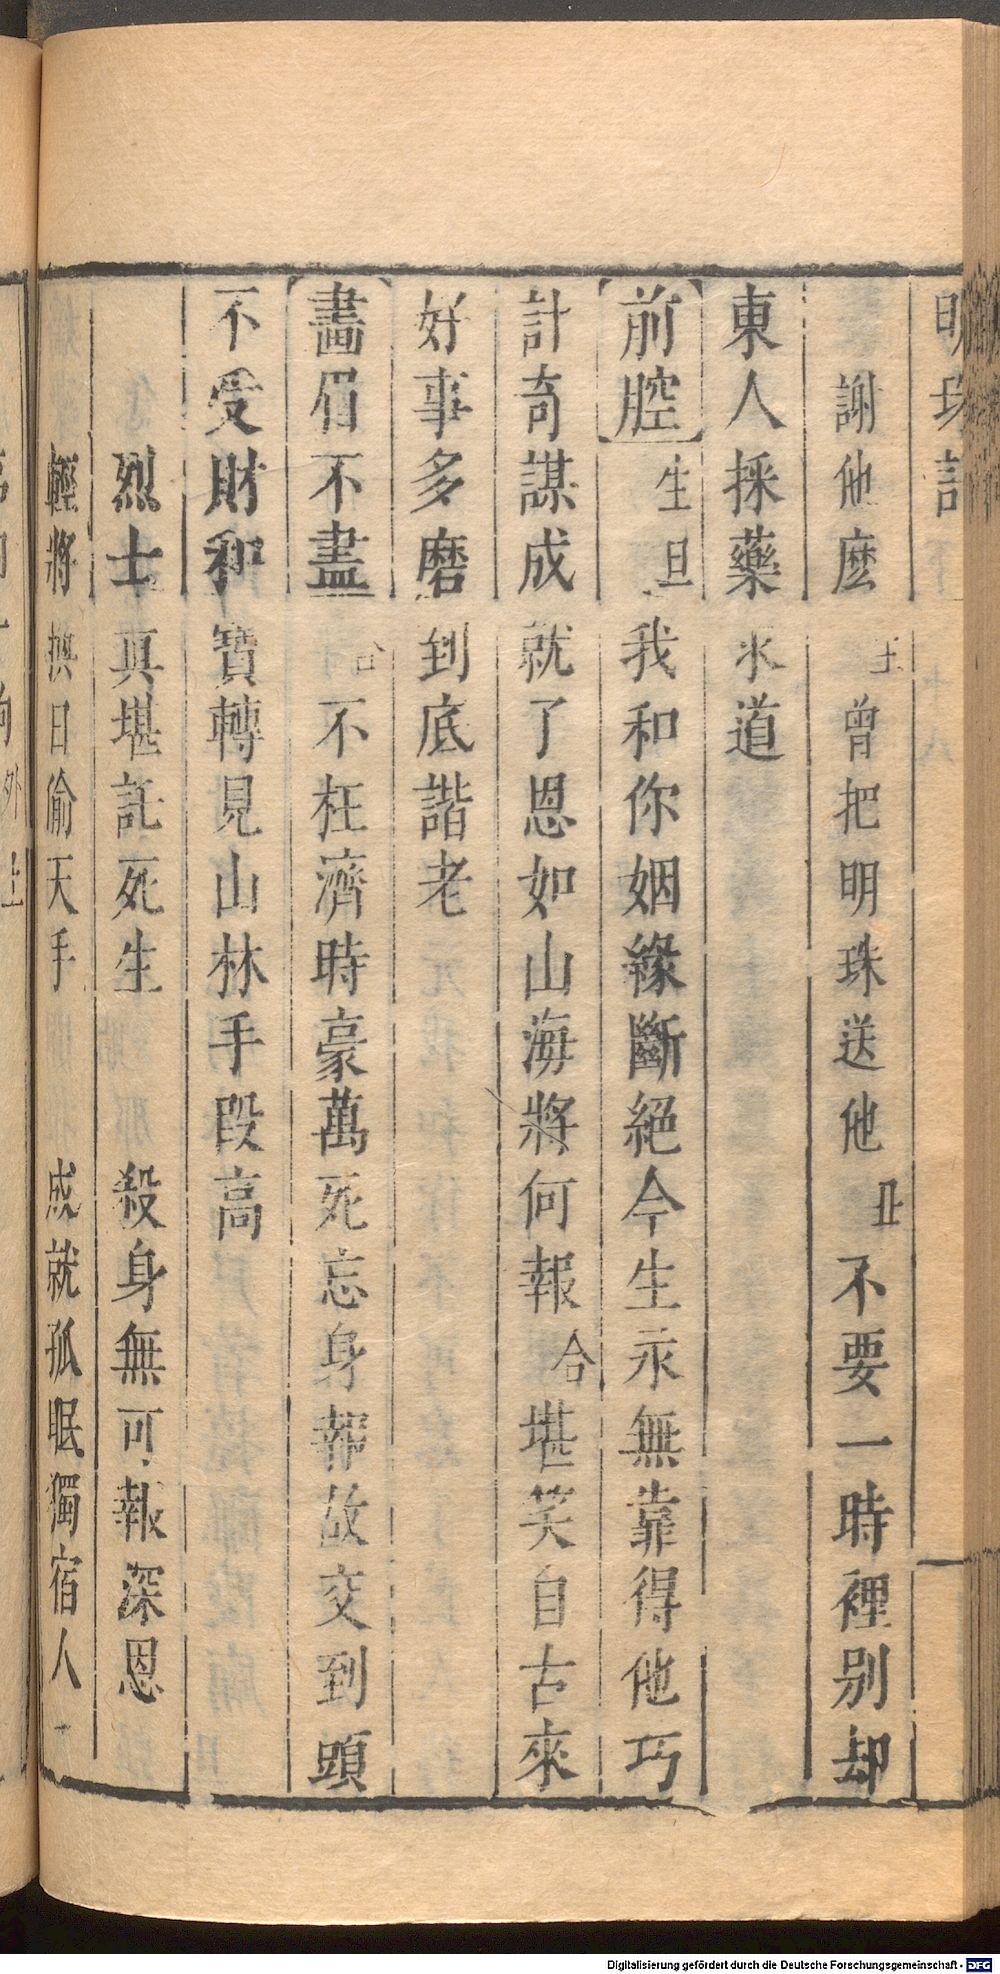 明珠記
謝他麽 生 曾把明珠送他 丑 不要一時裡别却
東人採藥 氷道
前腔 生旦 我和你姻緣斷絕今生永無靠得他巧
計奇謀成就了恩如山海將何報 合 堪笑自古來
好事多磨到底諧老
畫眉不盡 合 不枉濟時豪萬死忘身報故交到頭
不受財和寶轉見山林手段高
烈士真堪託死生 殺身無可報深恩
輕將換日偷天手 成就孤眠獨宿人
Digitalisierung gefördert durch die Deutsche Forschungsgemeinschaft - DFG